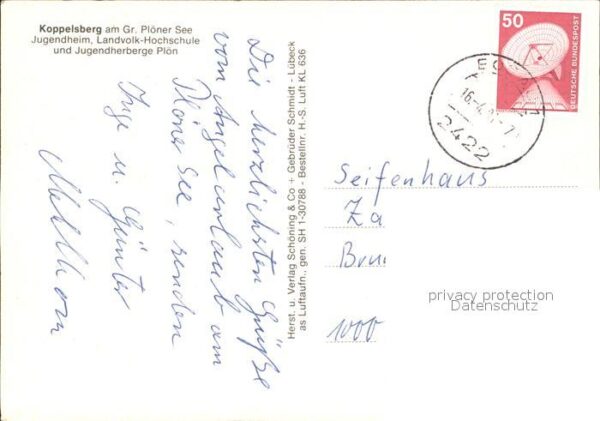 Koppelsberg am Gr. Plöner See
Jugendheim, Landvolk-Hochschule
und Jugendherberge Plön
Die herzlichsten Grüße
vom Angelurlaub am
Plöner See, senden
Inge u. Günter
Mehlhorn
Herst. u. Verlag Schöning & Co + Gebrüder Schmidt - Lübeck
as Luftaufn., gen. SH 1-30788 - Bestellnr. H.-S. Luft KL 636
50
DEUTSCHE BUNDESPOST
2422
Seifenhaus
Za
Bru
1000
privacy protection
Datenschutz